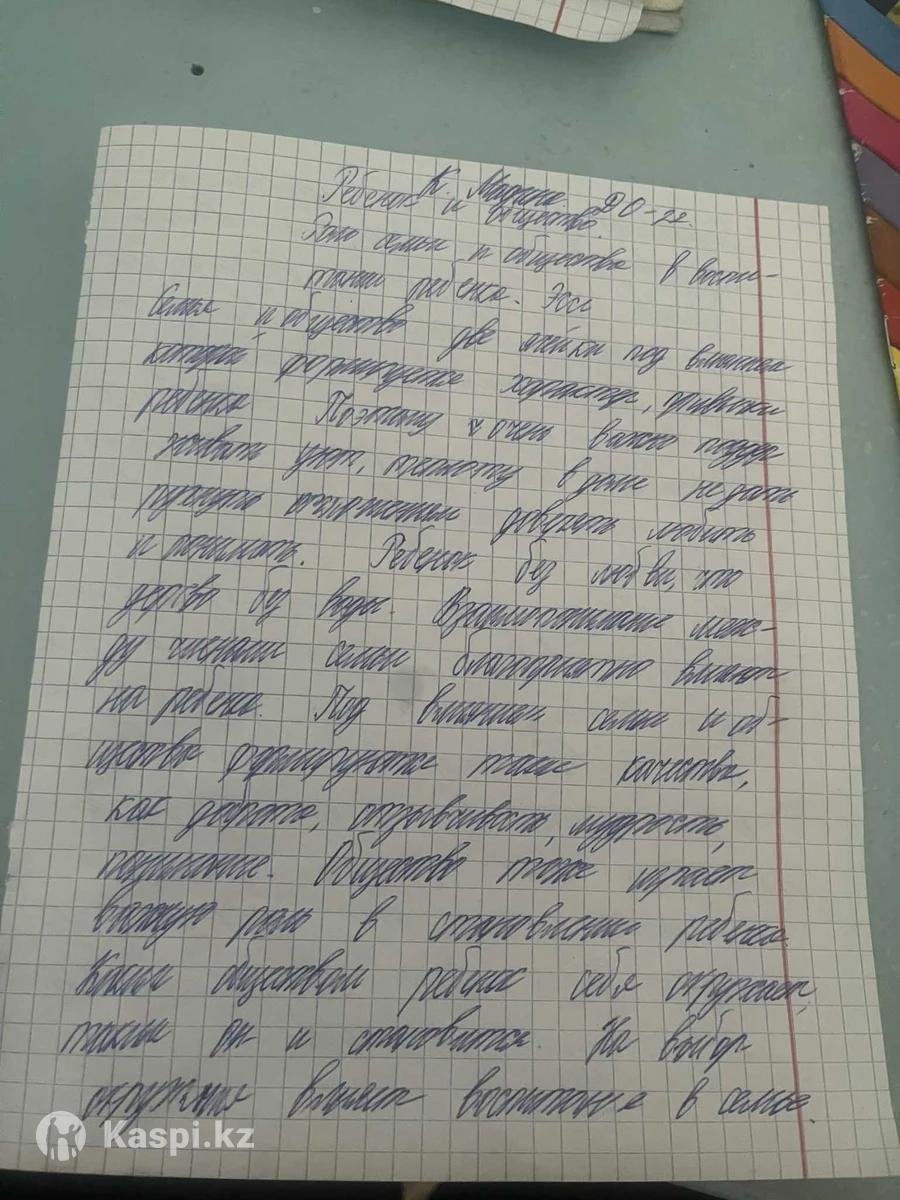 К. Мадина ДО-22.
Ребенок и общество.
Роль семьи и общества в воспи-
тании ребенка. Эссе
Семья и общество две ячейки под влиянием
которых формируется характер, привычки
ребенка Поэтому очень важно поддер
живать уют, теплоту в доме не дать
доверять любить
и понимать. Ребенок без любви, что
дерево без воды. Взаимопонимание меж-
ду членами семьи благоприятно влияют
на ребенка. Под влиянием семьи и об-
щества формируются такие качества,
как доброта, отзывчивость, мудрость,
Общество тоже играет
важную роль в становлении ребенка.
Каким обществом ребенок себя окружает,
таким он и становится. На выбор
окружения влияет воспитание в семье.
Kaspi.kz